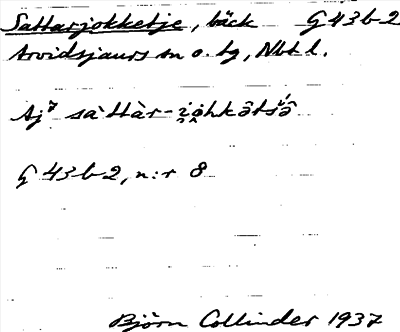 Sattarjokketje, bäck G 43 b 2
Arvidsjaurs sn o. tg, Nbt l.
Aj⁷ sàttàr-i̯ǫhkêtśê
G 43 b 2, n:r 8
Björn Collinder 1937